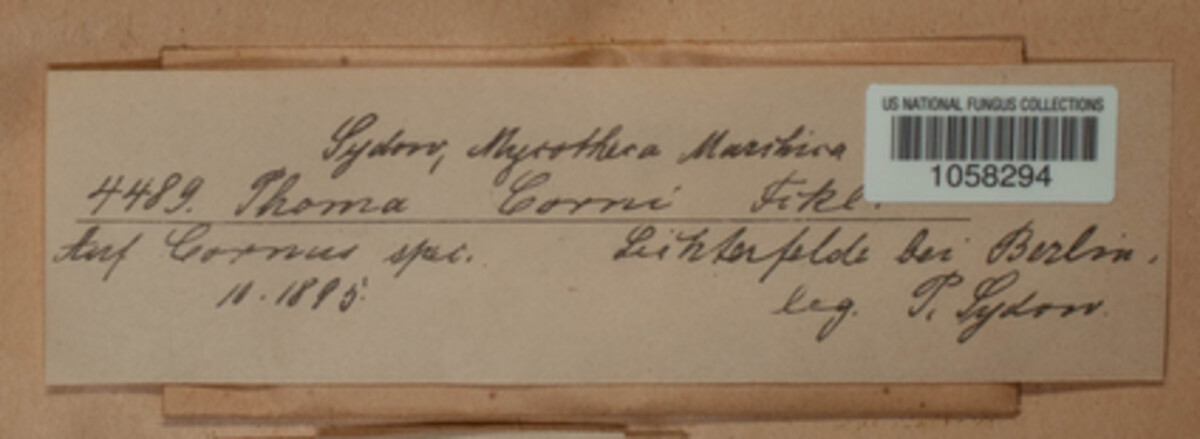 Sydow, Mycotheca Marchica
US NATIONAL FUNGUS COLLECTIONS
1058294
4489. Phoma Corni Fckl.
Auf Cornus spec. Lichterfelde bei Berlin.
10.1895. leg. P. Sydow.